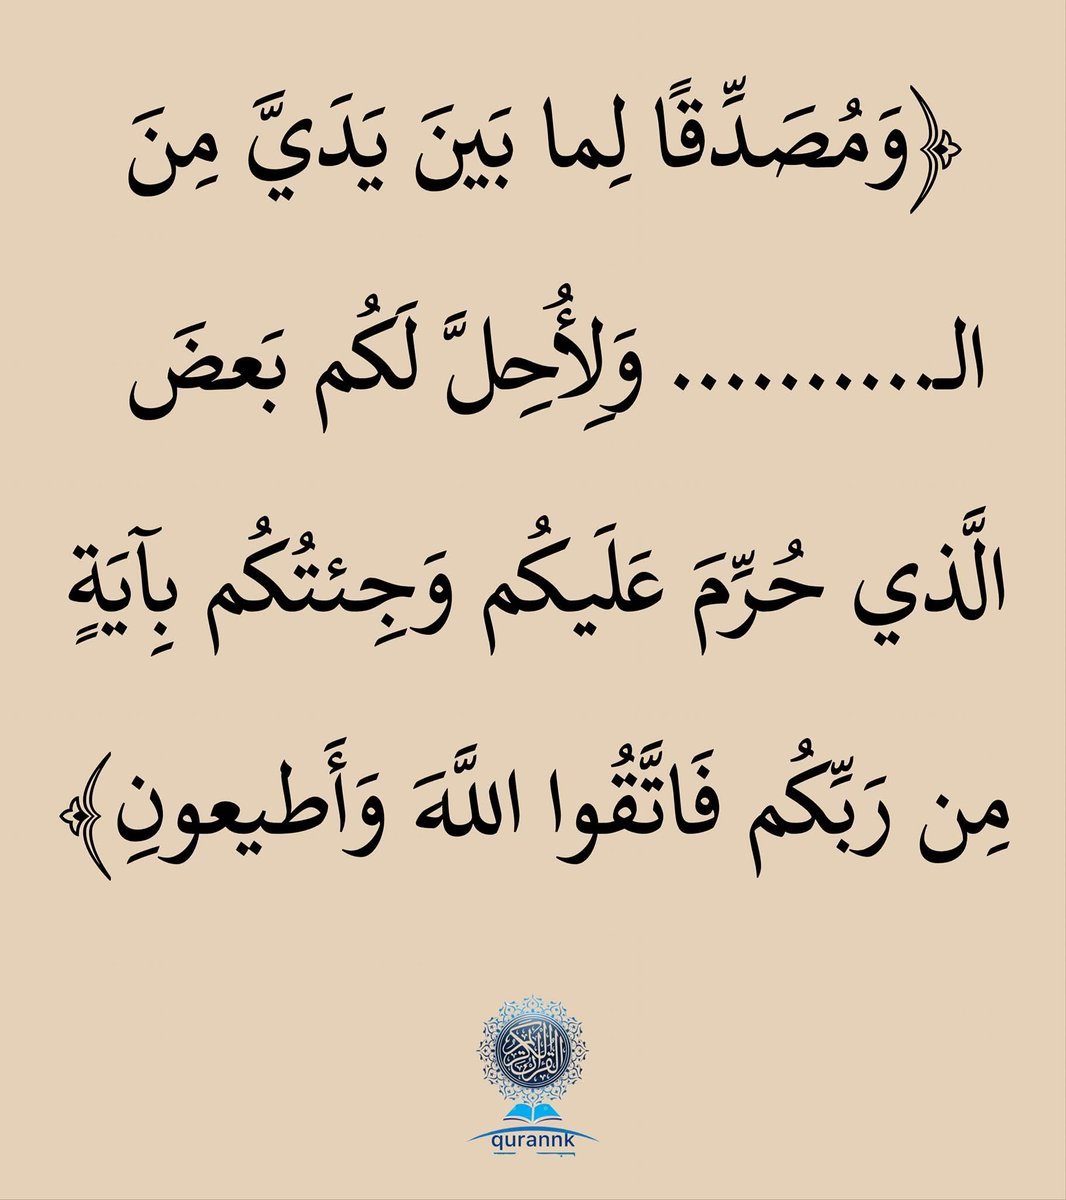 ﴿وَمُصَدِّقًا لِما بَينَ يَدَيَّ مِنَ
الـ.......... وَلِأُحِلَّ لَكُم بَعضَ
الَّذي حُرِّمَ عَلَيكُم وَجِئتُكُم بِآيَةٍ
مِن رَبِّكُم فَاتَّقُوا اللَّهَ وَأَطيعونِ﴾
القرآن الكريم
qurannk